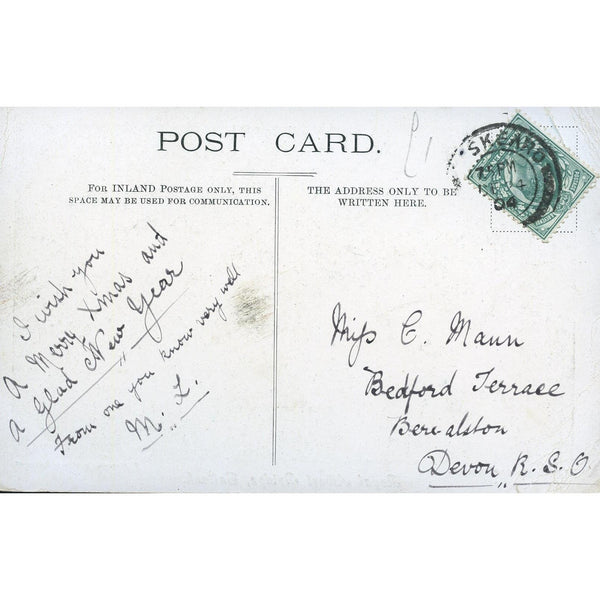 POST CARD.
£1
FOR INLAND POSTAGE ONLY, THIS
SPACE MAY BE USED FOR COMMUNICATION.
THE ADDRESS ONLY TO BE
WRITTEN HERE.
I wish you
A Merry Xmas and
A Glad New Year
From one you know very well
M. L.
Miss C. Mann
Bedford Terrace
Bere-alston
Devon, R. S. O
04